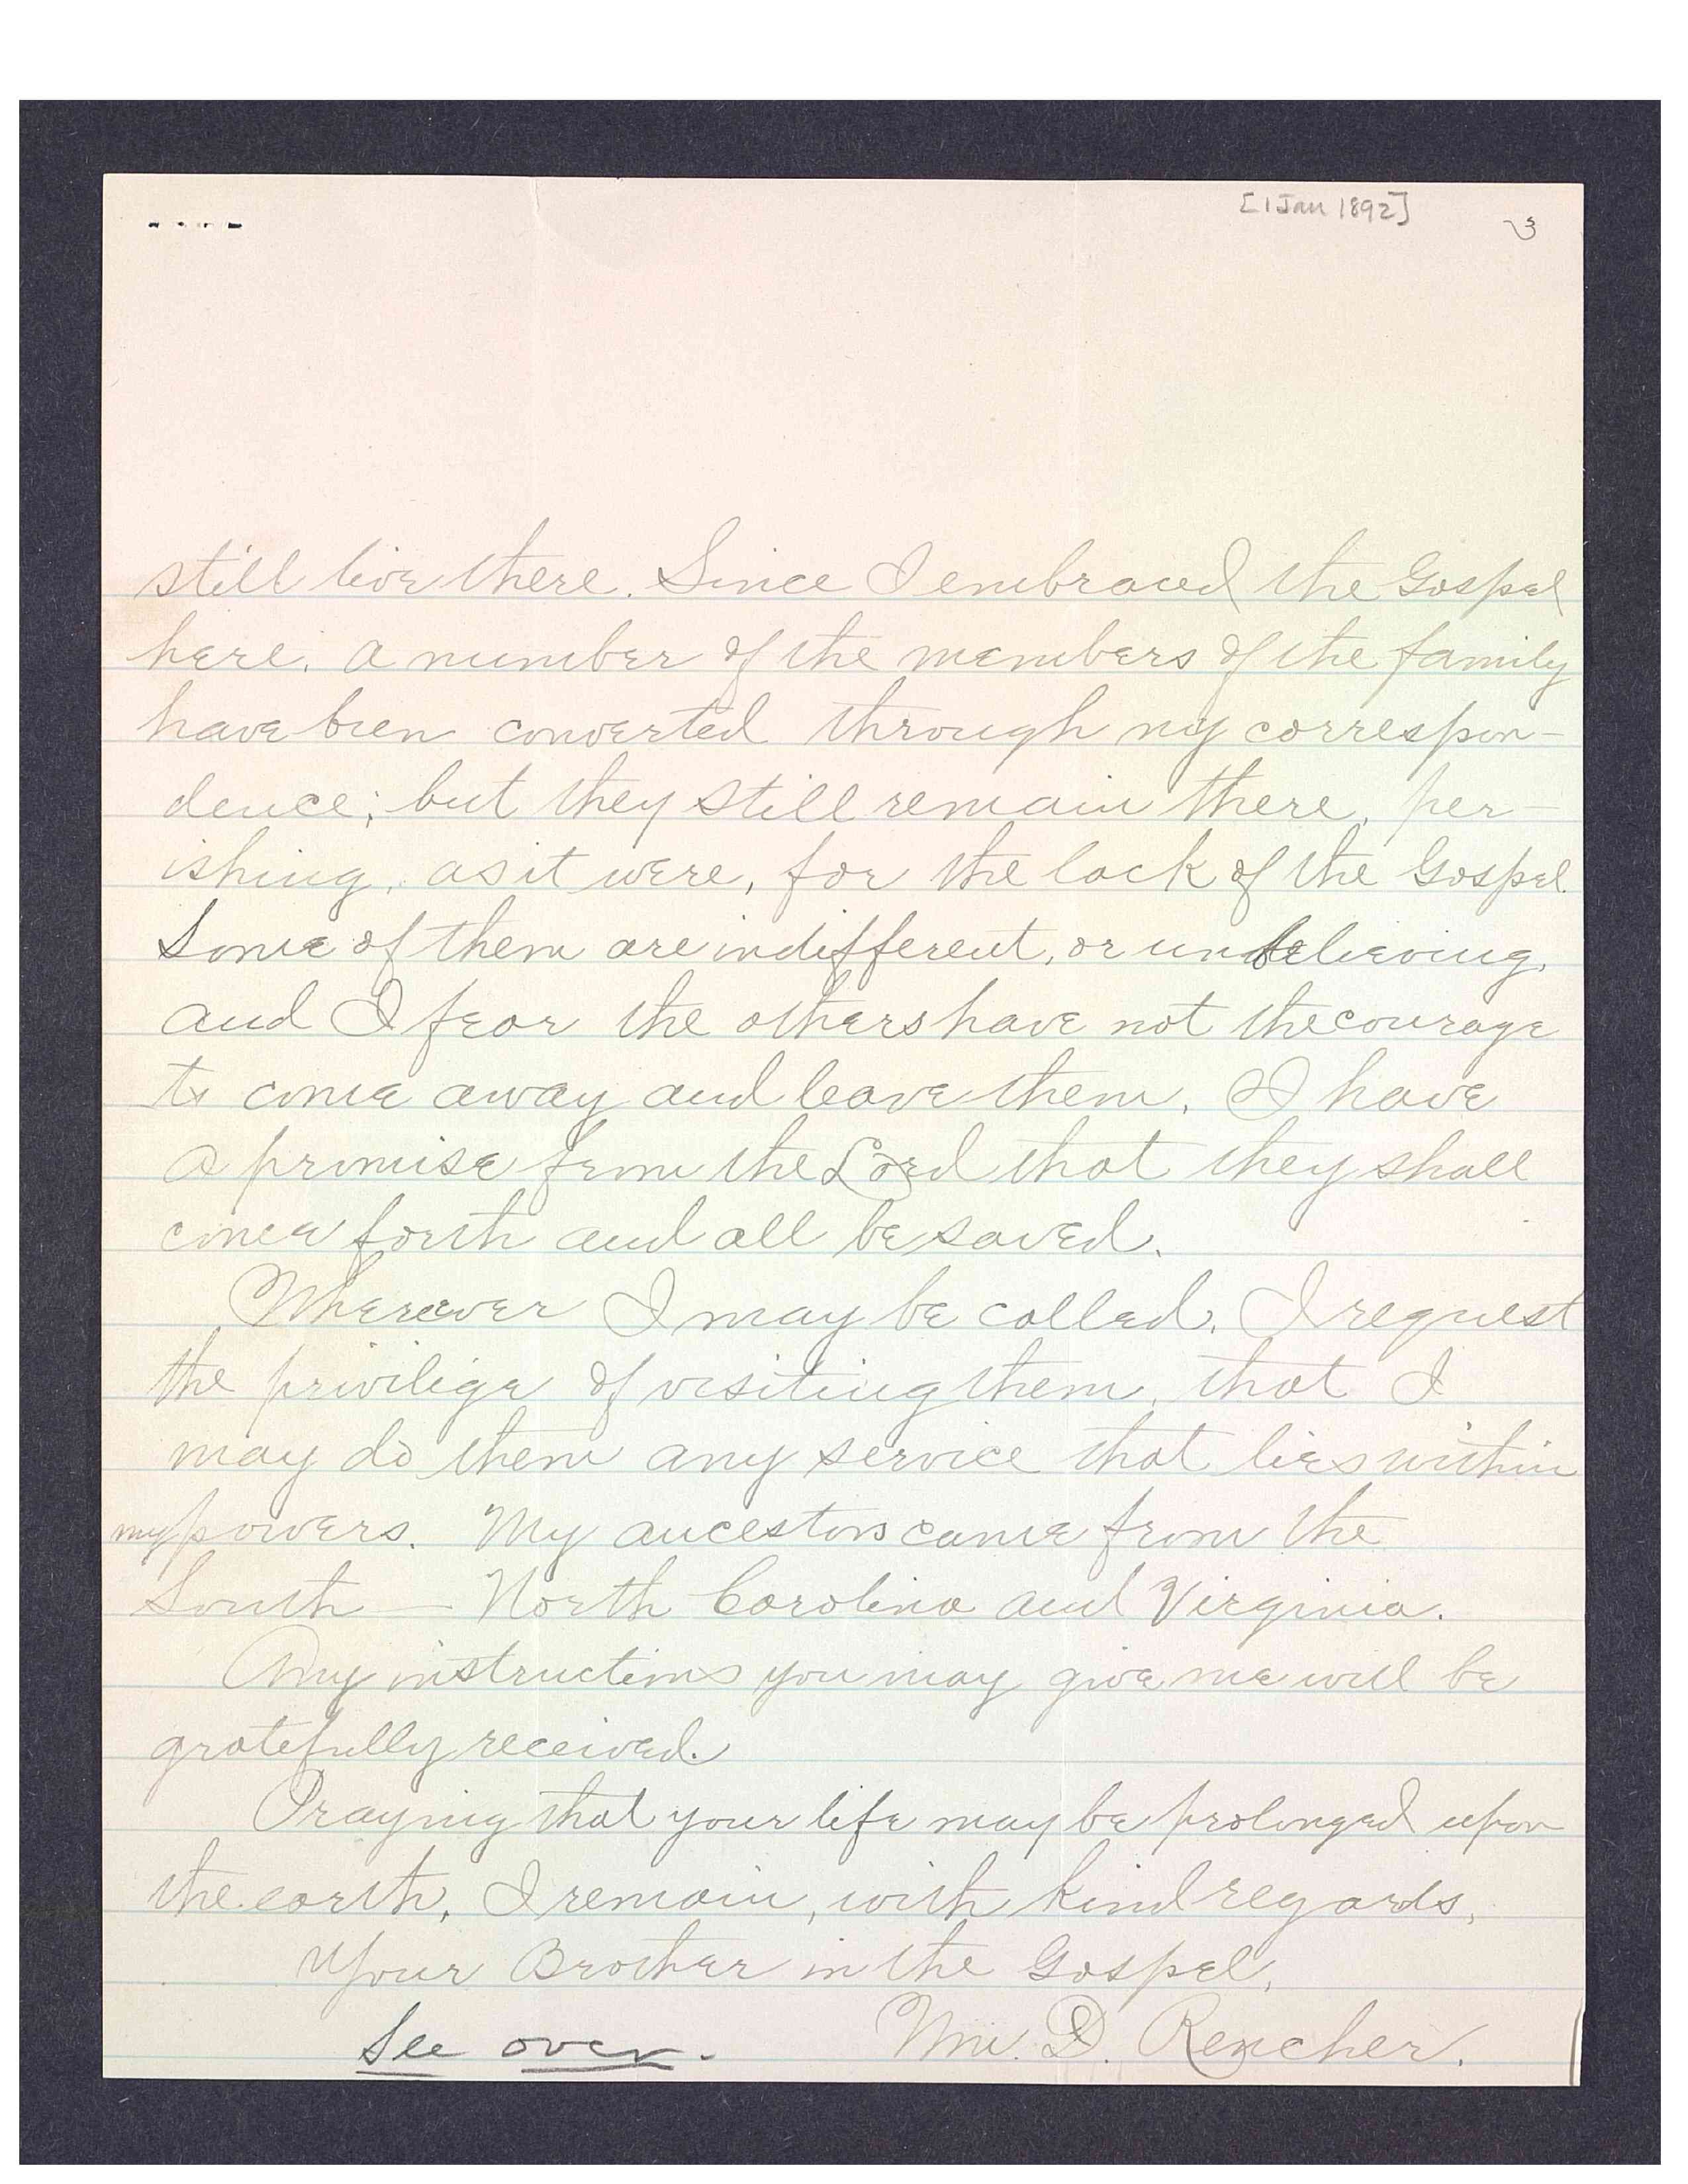 [1 Jan 1892]
3
still live there. Since I embraced the Gospel
here, a number of the members of the family
have been converted through my correspon-
dence; but they still remain there, per-
ishing, as it were, for the lack of the Gospel.
Some of them are indifferent, or unbelieving,
and I fear the others have not the courage
to come away and leave them. I have
a promise from the Lord that they shall
come forth and all be saved.
Wherever I may be called, I request
the privilige of visiting them, that I
may do them any service that lies within
my powers. My ancestors came from the
South — North Carolina and Virginia.
Any instructions you may give me will be
gratefully received.
Praying that your life may be prolonged upon
the earth, I remain, with kind regards,
Your Brother in the Gospel,
Wm. D. Rencher.
See over.